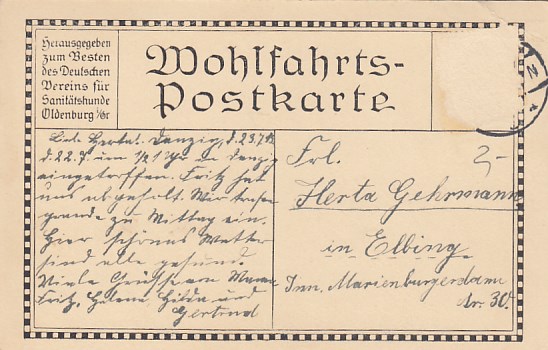 Herausgegeben
zum Besten
des Deutschen
Vereins für
Sanitätshunde
Oldenburg i/Gr
Wohlfahrts-
Postkarte
Lieb. Herta! Danzig, d. 23.7.
d. 22. 7. um 1/2 1 Uhr in Danzig
eingetroffen. Fritz hat
uns abgeholt. Wir trafen
gerade zu Mittag ein.
Hier schönes Wetter
sind alle gesund
Viele Grüsse von
Fritz, Helene, Hilda und
Gertrud
Frl.
2,-
Herta Gehrmann
in Elbing
Inn. Marienburgerdamm
Nr. 30.